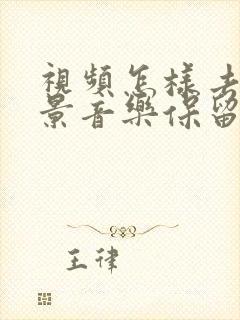 視頻怎樣去
景音樂保留
王律